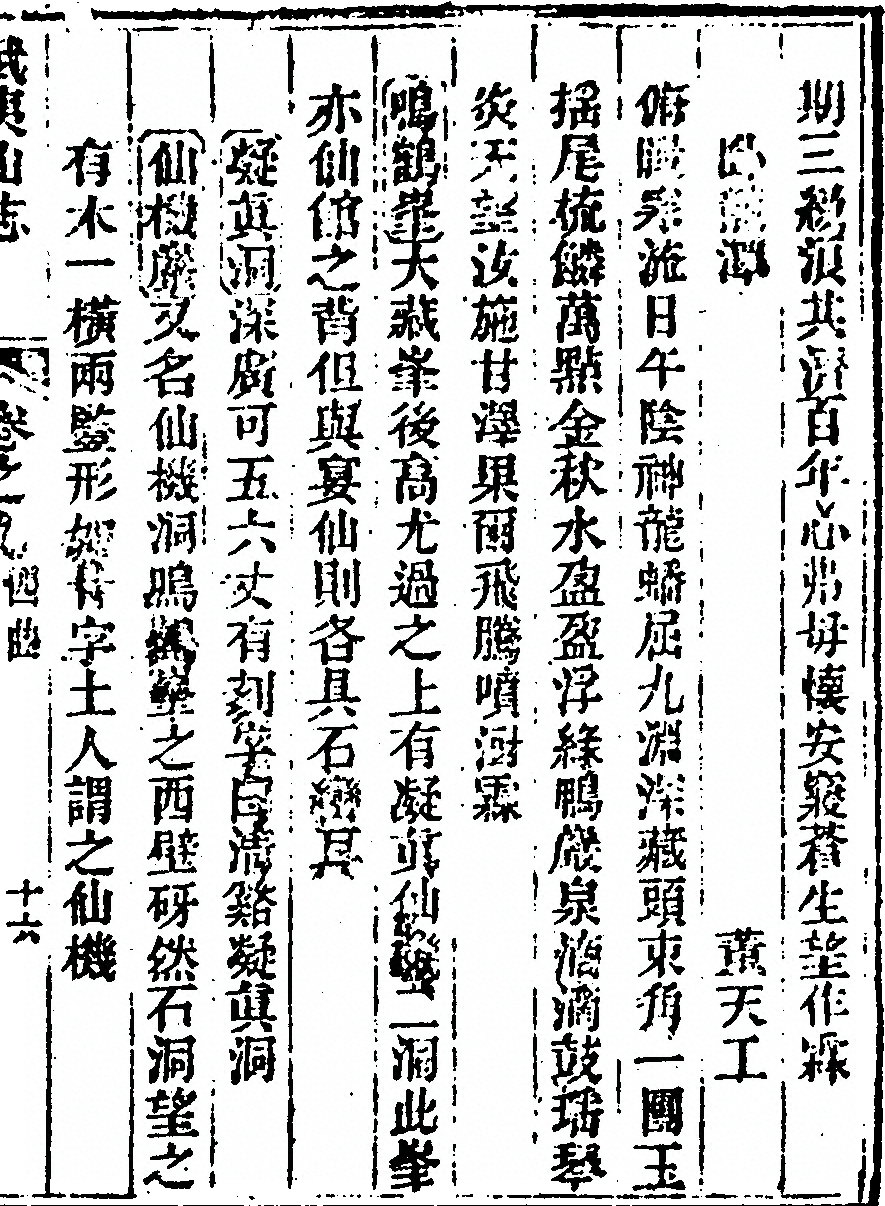 期三級浪共濟百年心弗毋懷安寢蒼生望作霖
臥龍潭 董天工
俯瞰旁施日午陰神龍蟠屈九淵深藏頭束角一團玉
掉尾梳鱗萬點金秋水盈盈浮綠鴨巖泉滴滴鼓瑤琴
炎天望汝施甘澤果爾飛騰噴澍霖
鳴鶴峯大藏峯後高尤過之上有凝真仙機二洞此峯
亦仙館之背但與宴仙則各具石巒耳
凝真洞深廣可五六丈有刻字曰清谿凝真洞
仙機巖又名仙機洞鳴鶴峯之西壁砑然石洞望之
有木一橫兩豎形如廿字土人謂之仙機
武夷山志 卷之九 四曲 十六